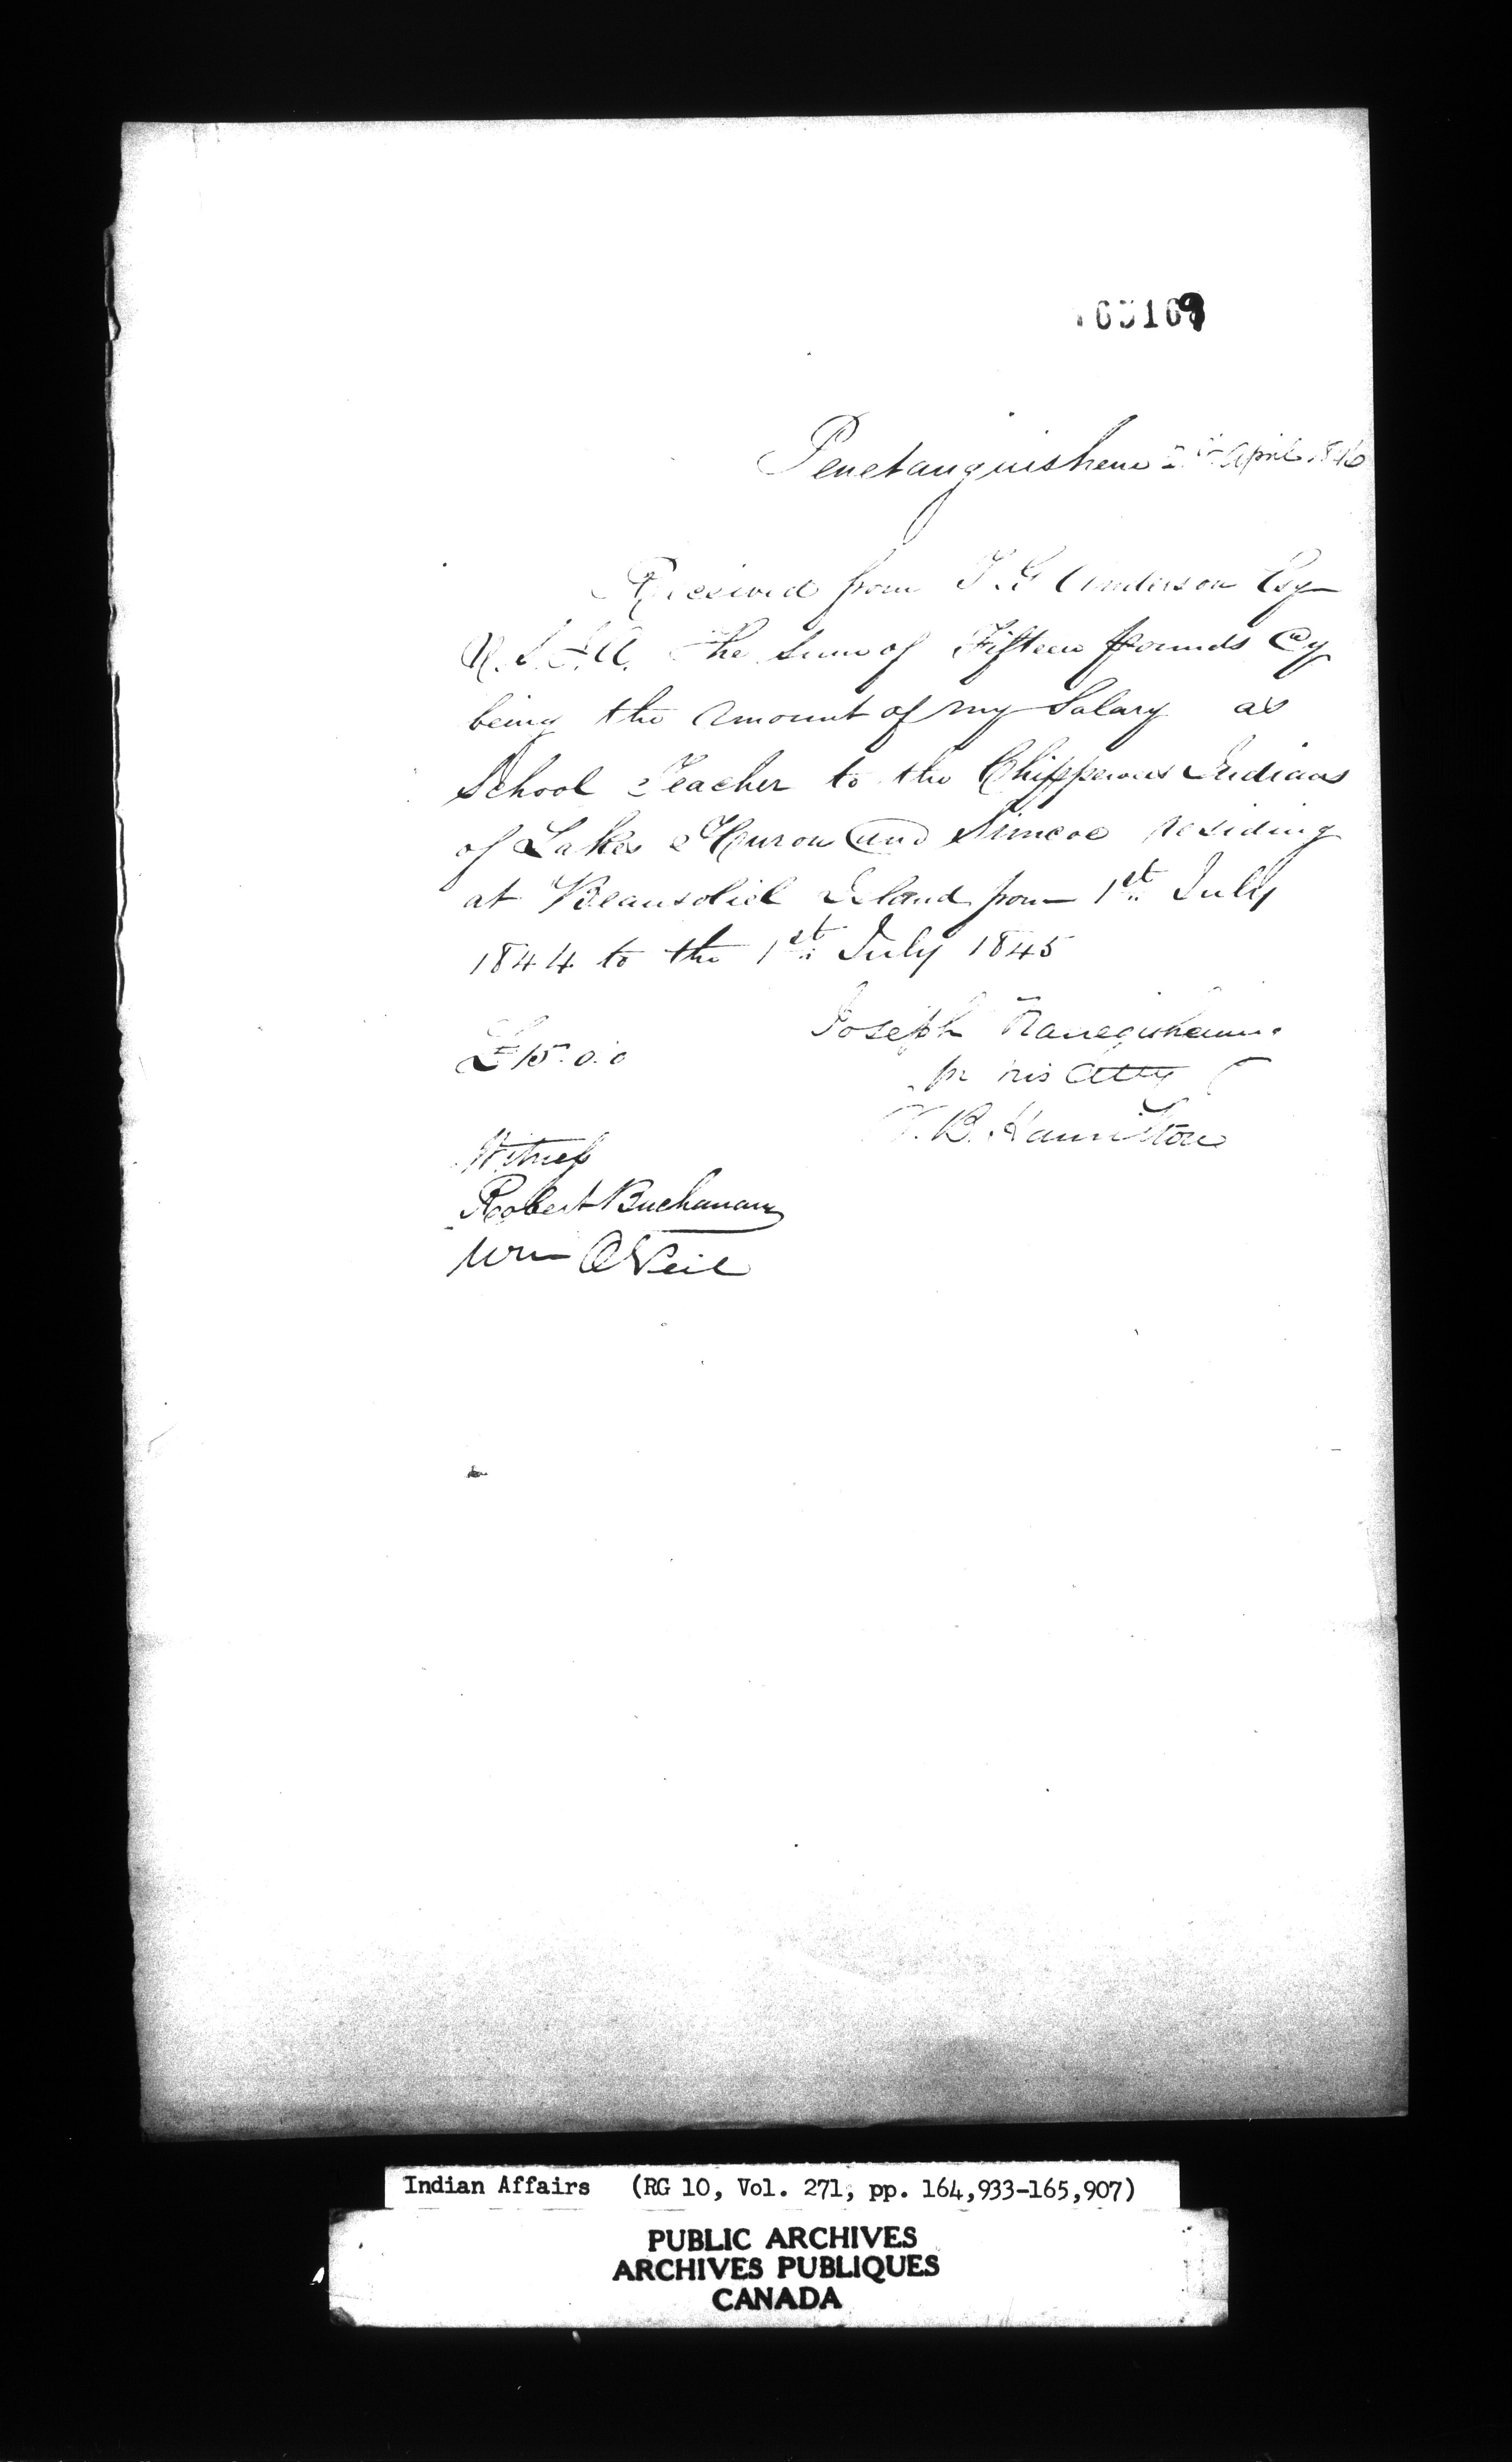 Penetanguishene April 1846
Received from T. G Anderson Esq
the sum of Fifteen pounds Cy
being the amount of my Salary as
School Teacher to the Chippewas Indians
of Lakes Huron and Simcoe residing
at Beausoliel Island from 1st July
1844 to the 1st July 1845
£15.0.0
Joseph
pr his Atty
T. B. Hamilton
Witness
Robert Buchanan
Wm O'Neil
Indian Affairs (RG 10, Vol. 271, pp. 164,933-165,907)
PUBLIC ARCHIVES
ARCHIVES PUBLIQUES
CANADA